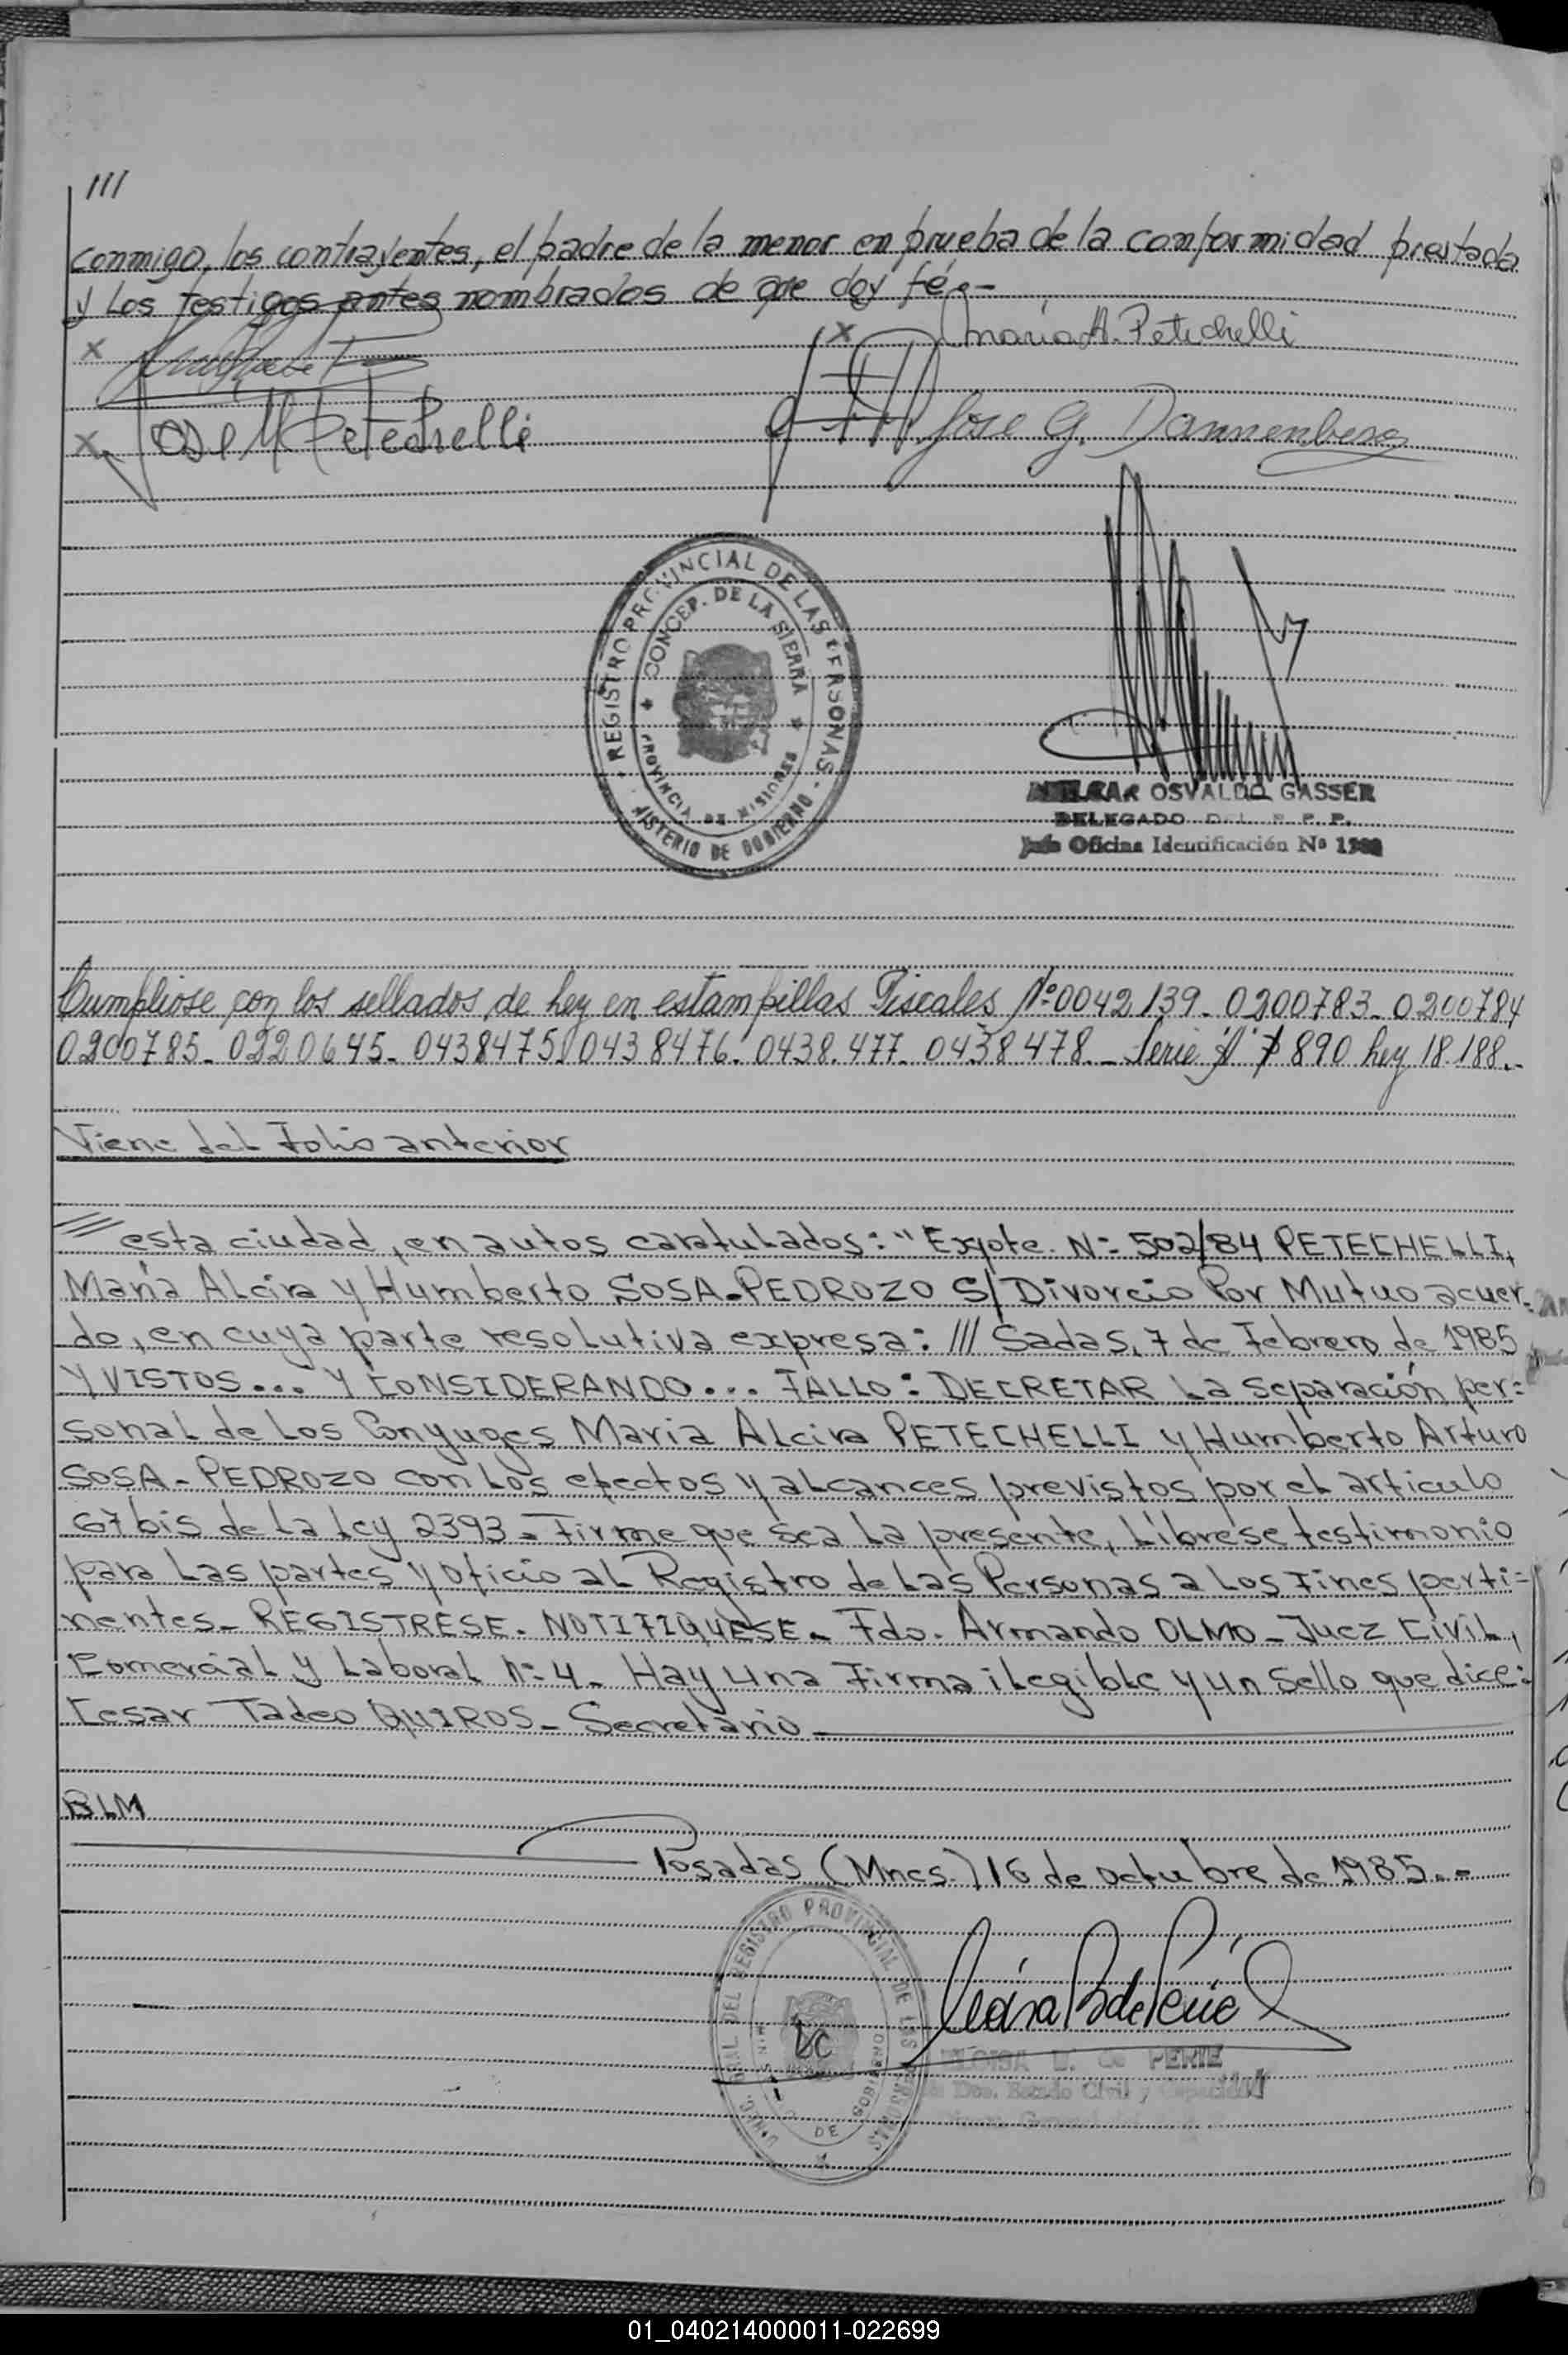 ///
conmigo, los contrayentes, el padre de la menor en prueba de la conformidad prestada
y los testigos antes nombrados de que doy fé.-
x
x Maria A. Petechelli
x Jose M Petechelli
Jose G. Dannenberg
REGISTRO PROVINCIAL DE LAS PERSONAS
CONCEP. DE LA SIERRA
PROVINCIA DE MISIONES
NISTERIO DE GOBIERNO
OSVALDO GASSER
DELEGADO DEL R. P. P.
Jefe Oficina Identificación Nº
Cumpliose con los sellados de ley en estampillas Fiscales Nº 0042139- 0200783- 0200784
0200785- 0220645- 0438475- 0438476- 0438.477- 0438478.- Serie "A" $ 890 ley 18.188.-
Viene del Folio anterior
/// esta ciudad, en autos caratulados: "Expte. Nº 502/84 PETECHELLI,
Maria Alcira y Humberto SOSA-PEDROZO S/ Divorcio Por Mutuo acuer-
do, en cuya parte resolutiva expresa: /// Sadas, 7 de Febrero de 1985
Y VISTOS... Y CONSIDERANDO... FALLO: DECRETAR La separación per=
sonal de los Conyuges Maria Alcira PETECHELLI y Humberto Arturo
SOSA-PEDROZO con los efectos y alcances previstos por el articulo
67 bis de la Ley 2393- Firme que sea la presente, Líbrese testimonio
para las partes y oficio al Registro de las Personas a los Fines perti=
nentes- REGISTRESE. NOTIFIQUESE- Fdo. Armando OLMO- Juez Civil,
Comercial y Laboral Nº 4- Hay una Firma ilegible y un Sello que dice:
Cesar Tadeo QUIROS- Secretario-
BLM
Posadas (Mnes.) 16 de octubre de 1985.-
DEL REGISTRO PROVINCIAL DE LAS PERSONAS
DE
ELOISA B. de PERIE
Dto. Estado Civil y Capacidad
01_040214000011-022699